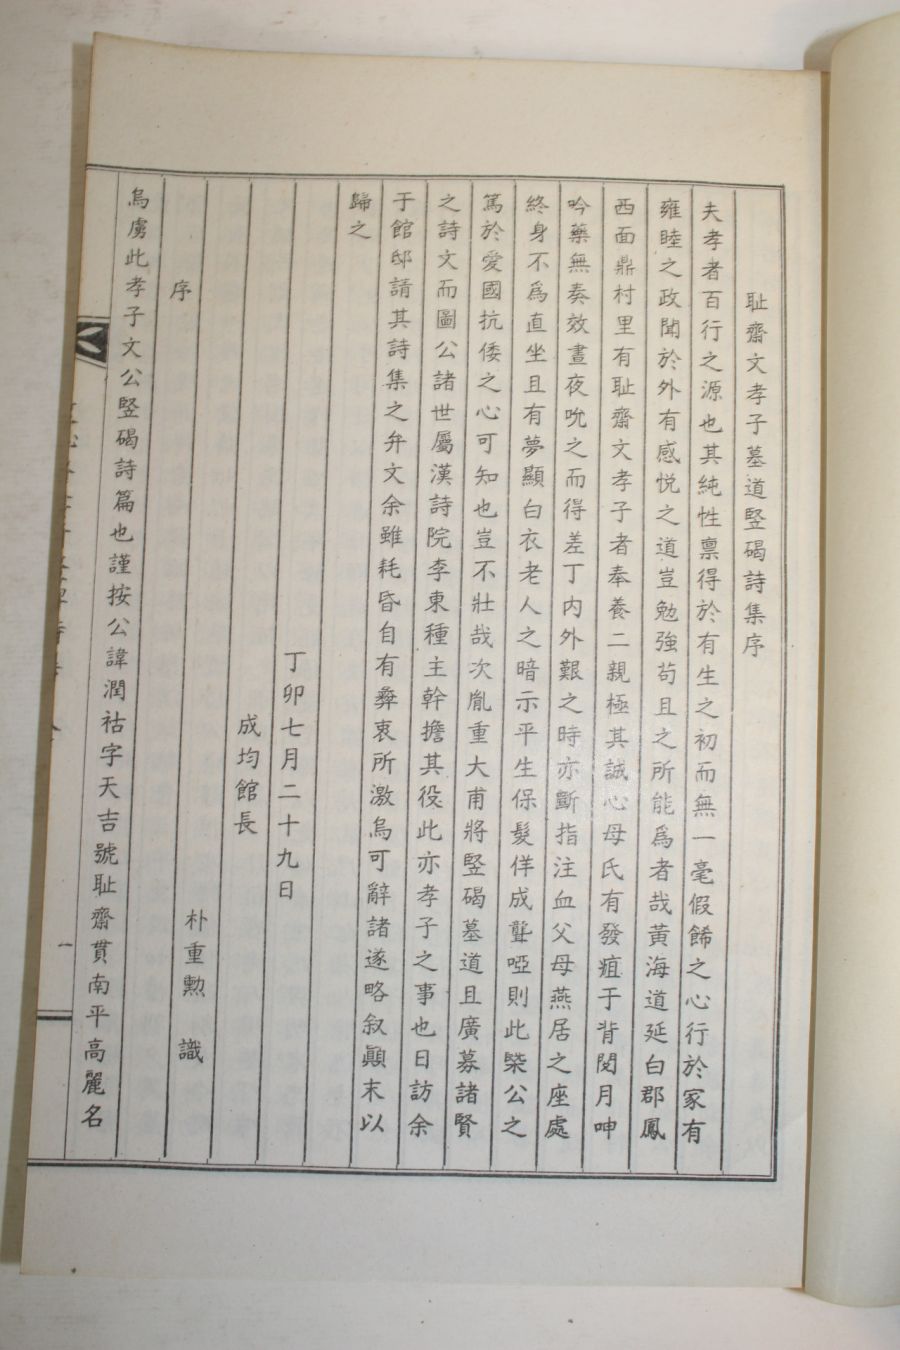 耻齋文孝子墓道竪碣詩集序
夫孝者百行之源也其純性禀得於有生之初而無一毫假餙之心行於家有
雍睦之政聞於外有感悦之道豈勉強苟且之所能爲者哉黃海道延白郡鳳
西面鼎村里有耻齋文孝子者奉養二親極其誠心母氏有發疽于背閱月呻
吟藥無奏效晝夜吮之而得差丁内外艱之時亦斷指注血父母燕居之座處
終身不爲直坐且有夢顯白衣老人之暗示平生保髮佯成聾啞則此槩公之
篤於愛國抗倭之心可知也豈不壯哉次胤重大甫將竪碣墓道且廣募諸賢
之詩文而圖公諸世屬漢詩院李東種主幹擔其役此亦孝子之事也日訪余
于館邸請其詩集之弁文余雖耗昏自有彜衷所激烏可辭諸遂略叙顚末以
歸之
丁卯七月二十九日
成均館長
朴重勲　識
序
烏虖此孝子文公竪碣詩篇也謹按公諱潤祜字天吉號耻齋貫南平高麗名
一